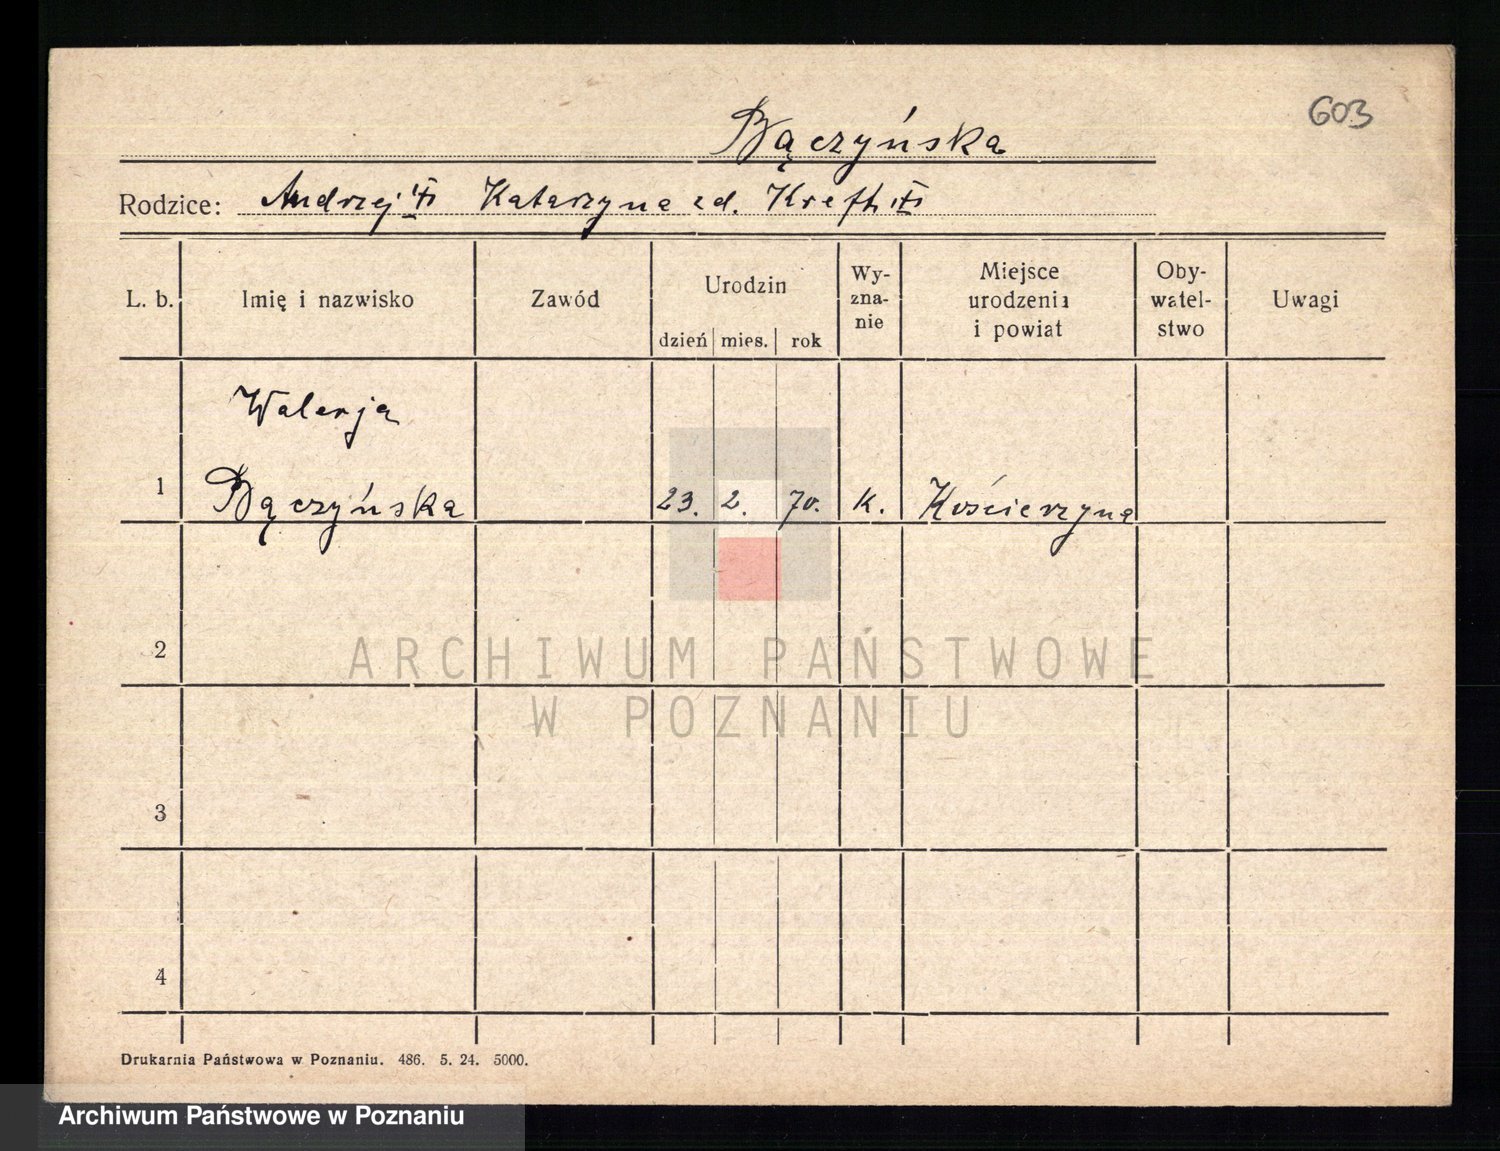 603
Bączyńska
Rodzice: Andrzej Katarzyna zd. Kreft
L. b. Imię i nazwisko Zawód Urodzin dzień mies. rok Wy-zna-nie Miejsce urodzenia i powiat Oby-watel-stwo Uwagi
Walerja
1 Bączyńska 23. 2. 70. k. Kościerzyna
2
ARCHIWUM PAŃSTWOWE
W POZNANIU
3
4
Drukarnia Państwowa w Poznaniu. 486. 5. 24. 5000.
Archiwum Państwowe w Poznaniu